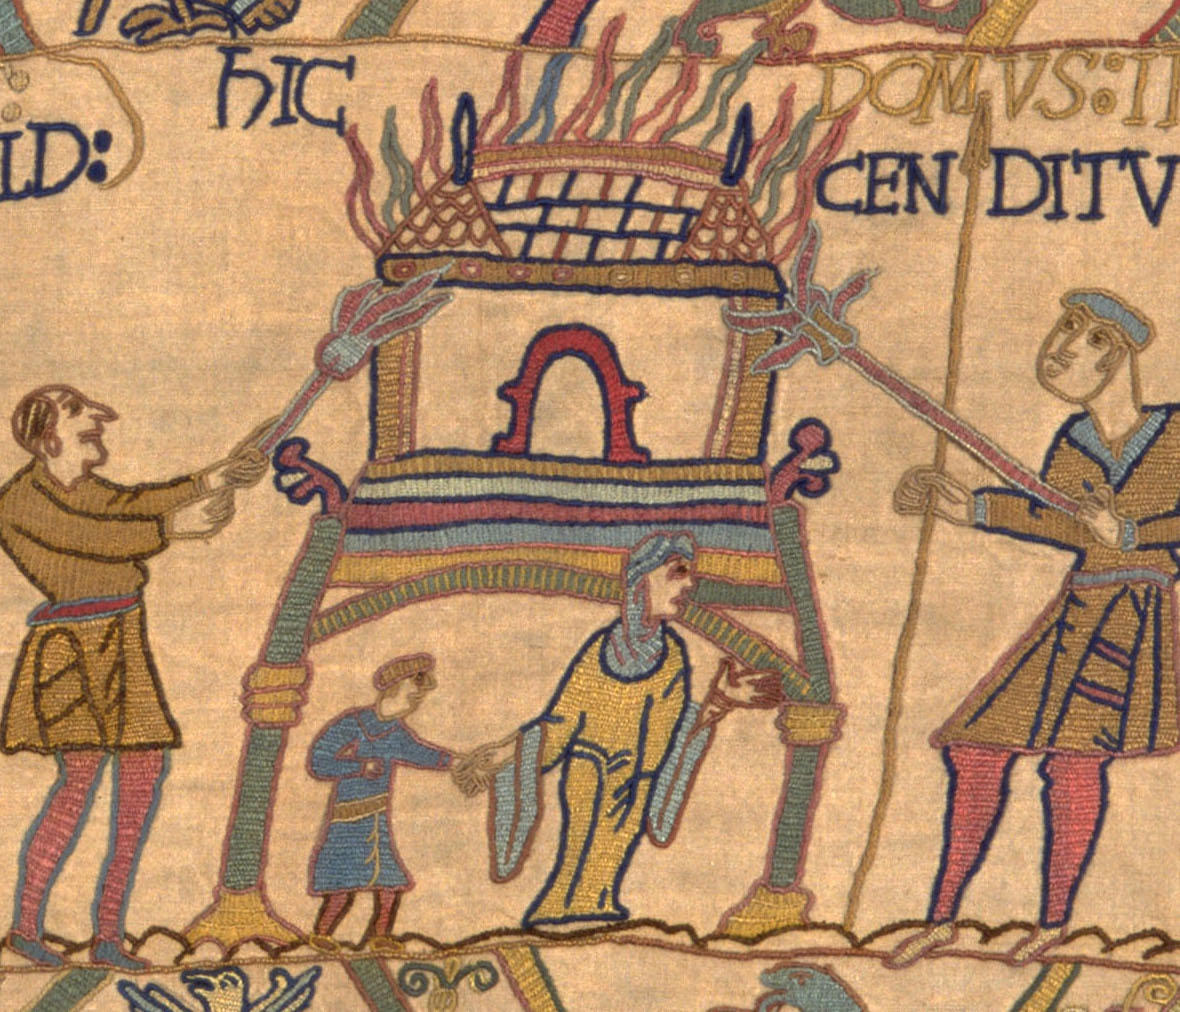 ID:
HIC
DOMVS: I
CEN DITV